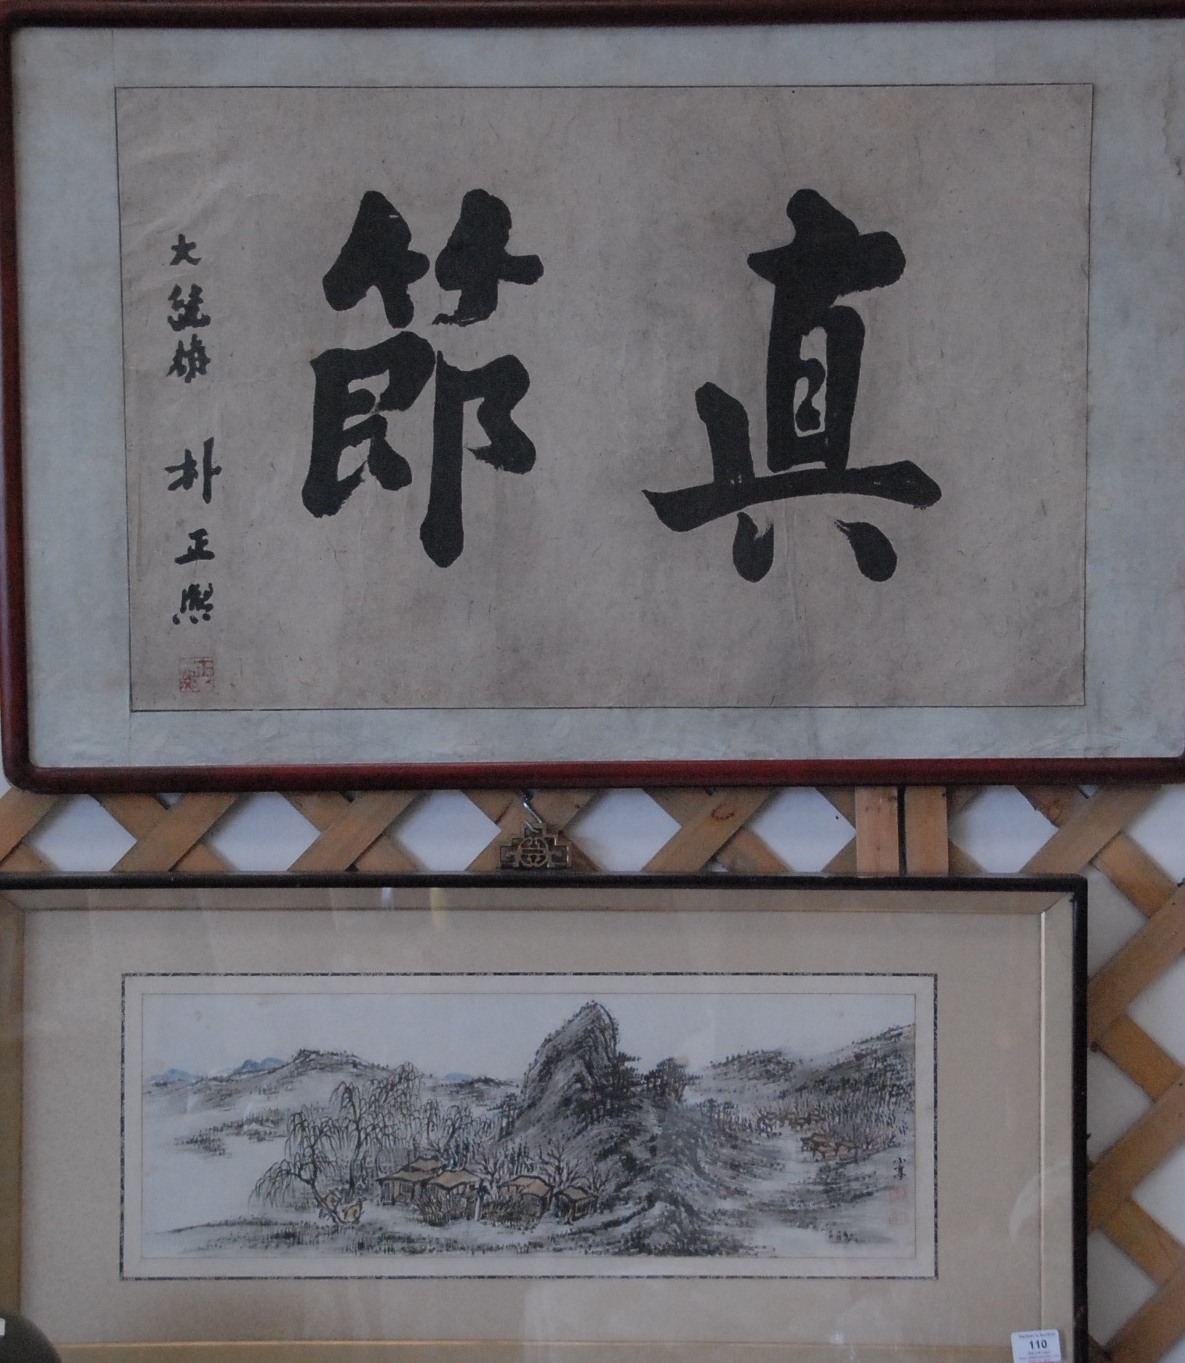 真節
大統領 朴正熙
110